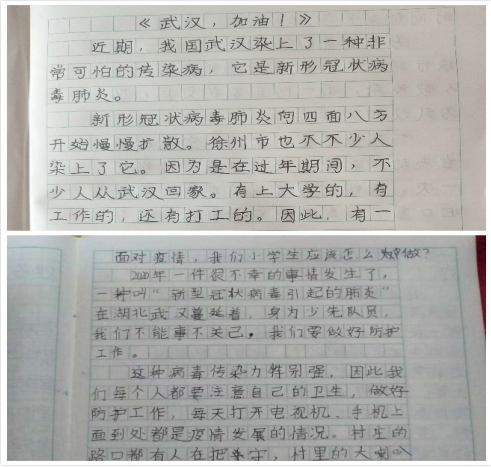 《武汉，加油！》
近期，我国武汉染上了一种非
常可怕的传染病，它是新形冠状病
毒肺炎。
新形冠状病毒肺炎向四面八方
开始慢慢扩散。徐州市也不不少人
染上了它。因为是在过年期间，不
少人从武汉回家。有上大学的，有
工作的，还有打工的。因此，有一
面对疫情，我们小学生应该怎么做？
2020年一件很不幸的事情发生了，
一种叫“新型冠状病毒引起的肺炎”
在湖北武汉蔓延着，身为少先队员，
我们不能事不关己，我们要做好防护
工作。
这种病毒传染力特别强。因此我
们每个人都要注意自己的卫生，做好
防护工作，每天打开电视机、手机上
面到处都是疫情发展的情况。村庄的
路口都有人在把守，村里的大喇叭